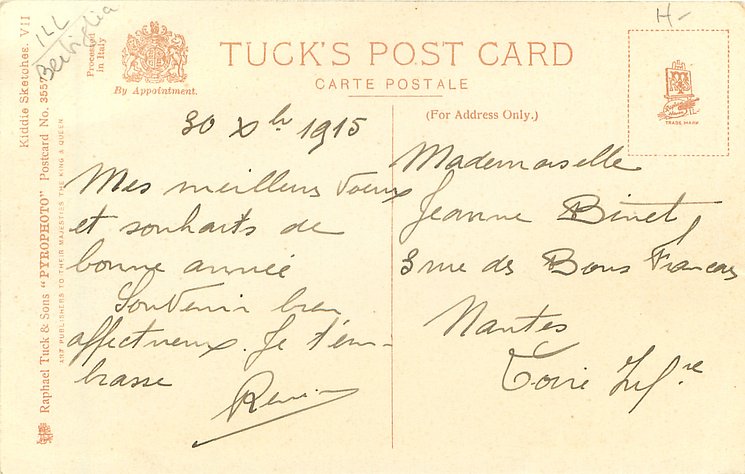 Kiddie Sketches. VII
Raphael Tuck & Sons "PYROPHOTO" Postcard No. 3551
ART PUBLISHERS TO THEIR MAJESTIES THE KING & QUEEN
Processed
in Italy
ILL
By Appointment.
TUCK'S POST CARD
CARTE POSTALE
(For Address Only.)
H-
TRADE MARK
30 Xbr 1915
Mes meilleurs voeux
et souhaits de
bonne année
Souvenir bien
affectueux. Je t'em-
brasse
Mademoiselle
Jeanne Binet
3 rue des Bons Francais
Nantes
Loire Infre